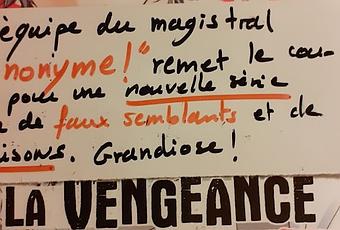 équipe du magistral
nonyme!" remet le cou-
pour une nouvelle série
de faux semblants et de
isons. Grandiose!
LA VENGEANCE